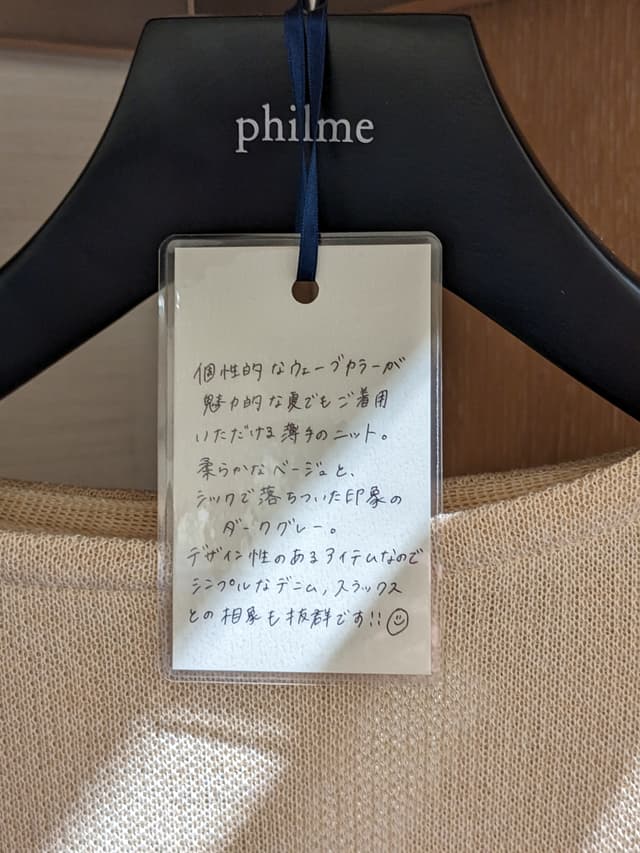 philme
個性的なウェーブカラーが
魅力的な夏でもご着用
いただける薄手のニット。
柔らかなベージュと、
シックで落ちついた印象の
ダークグレー。
デザイン性のあるアイテムなので
シンプルなデニム,スラックス
との相象も抜群です!!